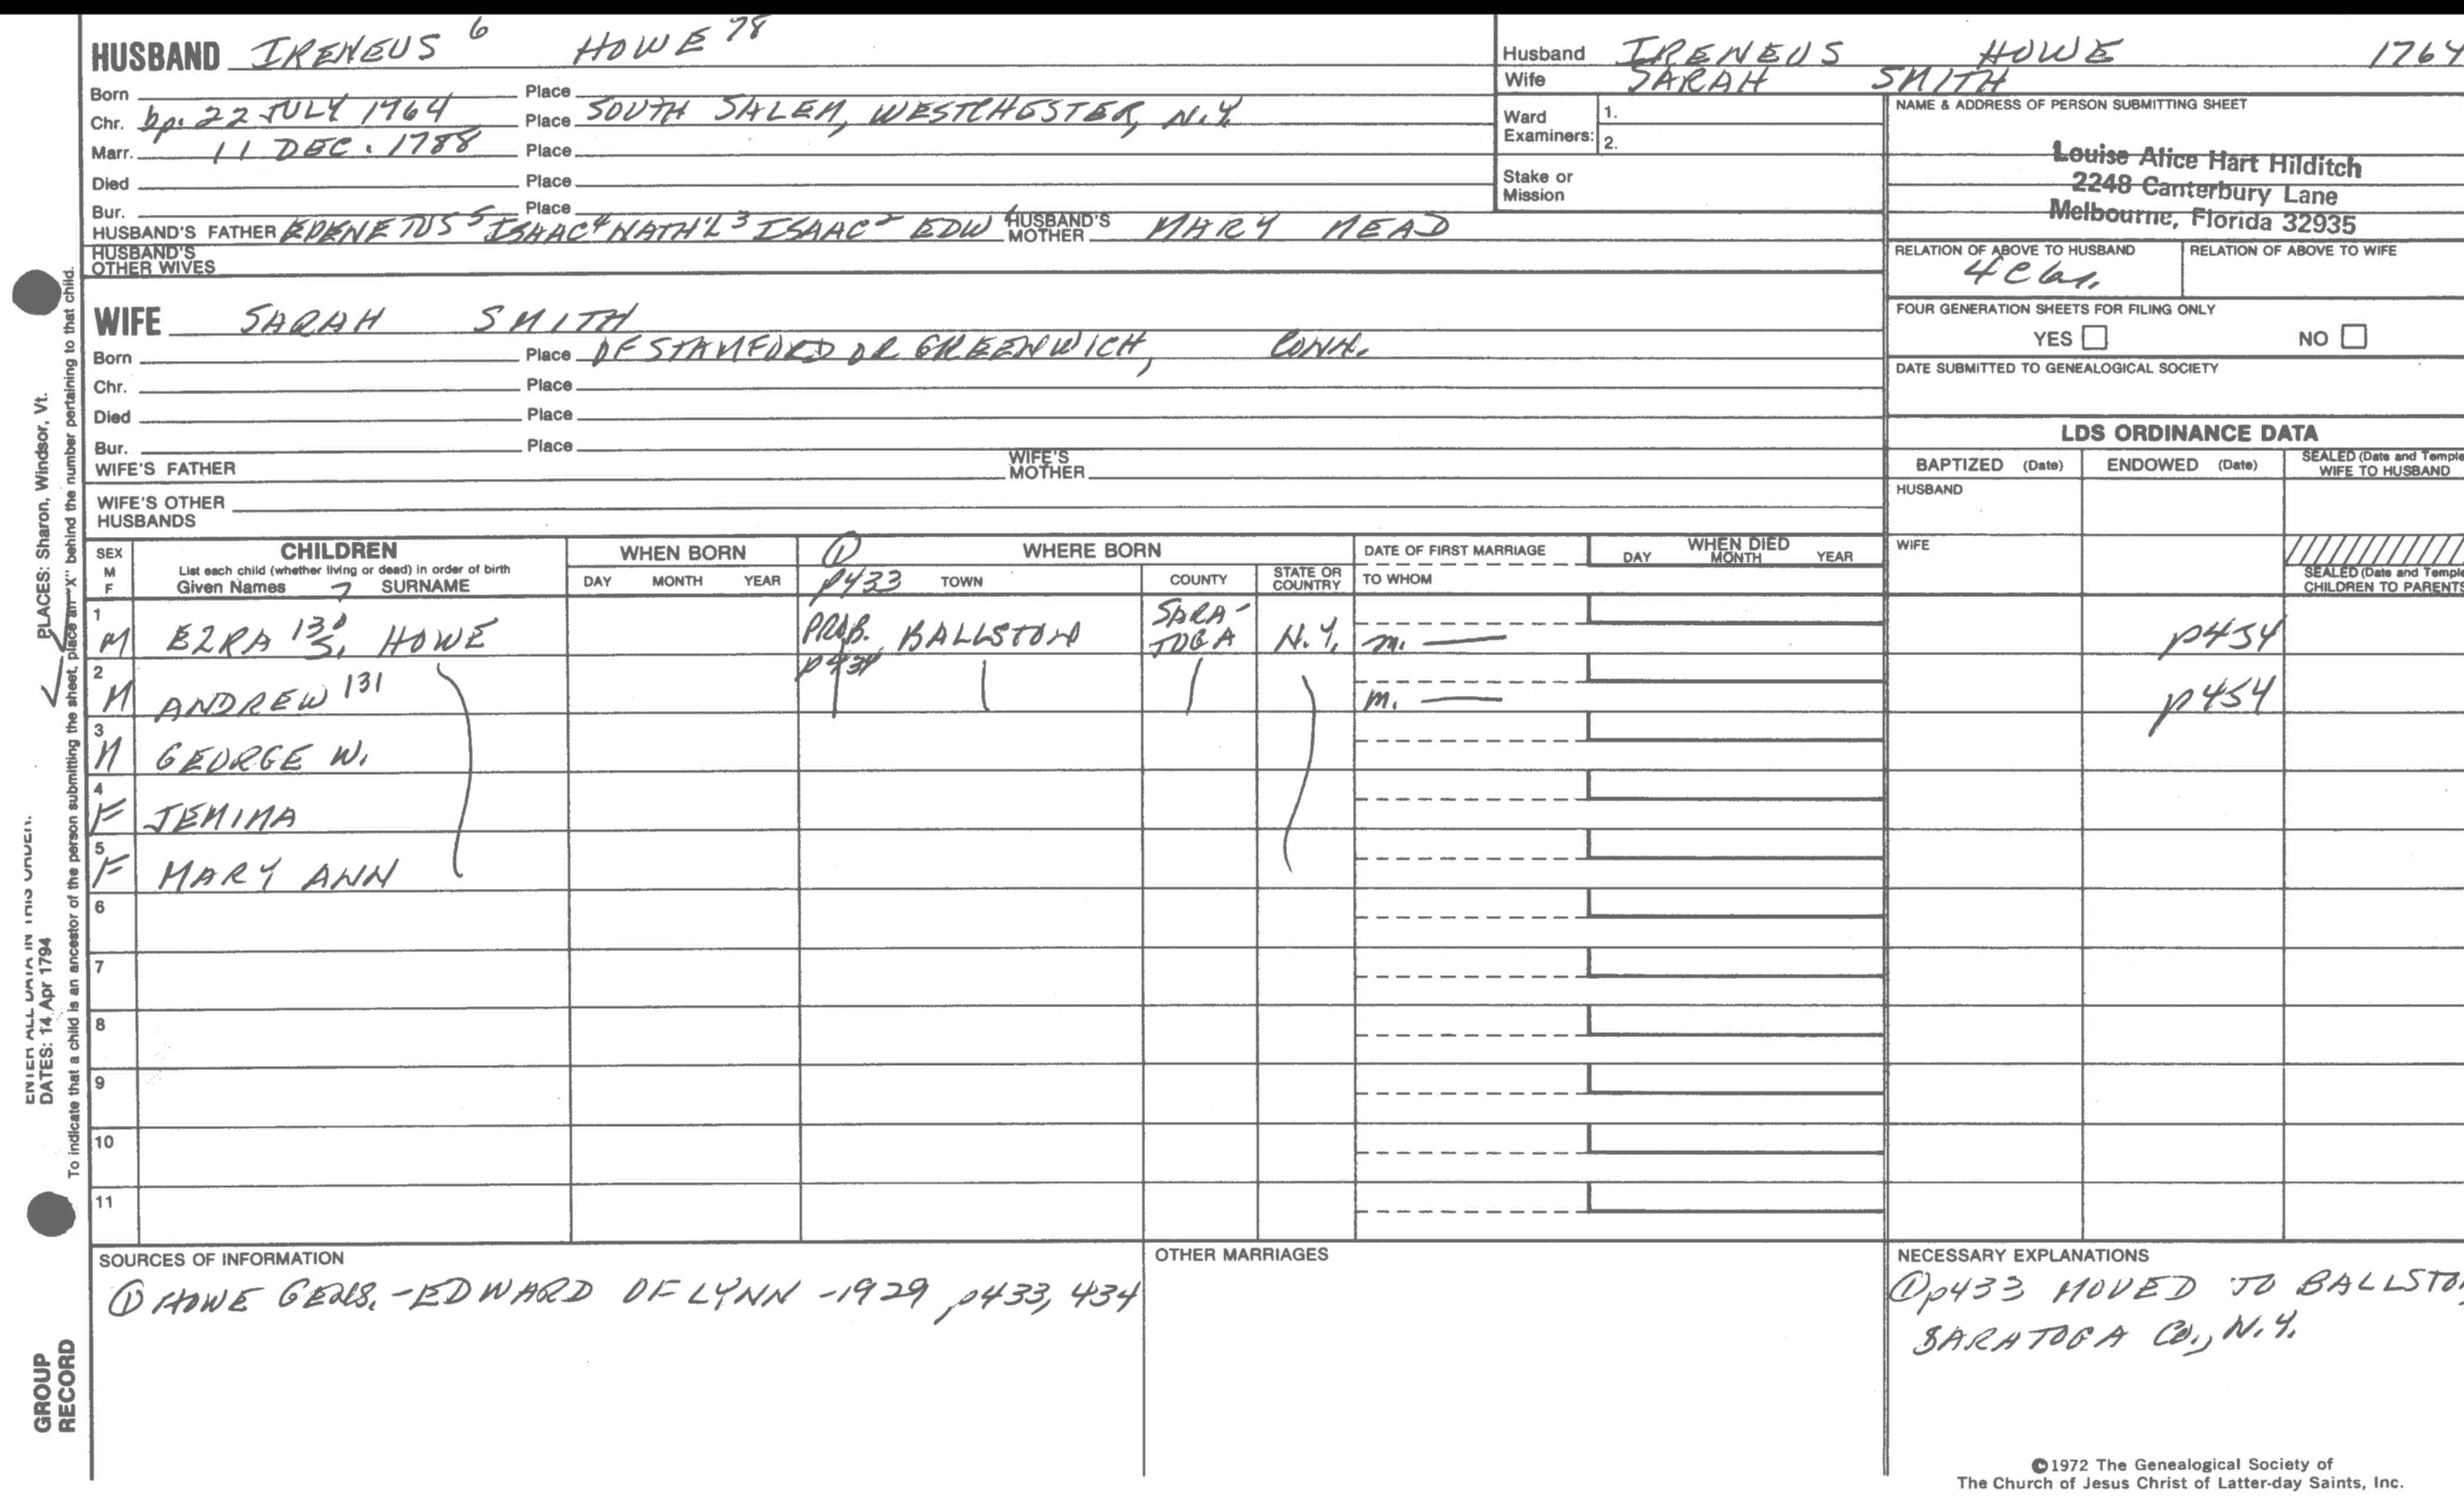 HUSBAND IRENEUS 6 HOWE 78
Born Place
Chr. bp. 22 JULY 1764 Place SOUTH SALEM, WESTCHESTER, N.Y.
Marr. 11 DEC. 1788 Place
Died Place
Bur. Place
HUSBAND'S FATHER EPENETUS 5 ISAAC 4 NATH'L 3 ISAAC 2 EDW 1 HUSBAND'S MOTHER MARY MEAD
HUSBAND'S OTHER WIVES
WIFE SARAH SMITH
Born Place OF STAMFORD OR GREENWICH, CONN.
Chr. Place
Died Place
Bur. Place
WIFE'S FATHER WIFE'S MOTHER
WIFE'S OTHER HUSBANDS
Husband IRENEUS HOWE 1764
Wife SARAH SMITH
Ward Examiners: 1.
2.
Stake or Mission
NAME & ADDRESS OF PERSON SUBMITTING SHEET
Louise Alice Hart Hilditch
2248 Canterbury Lane
Melbourne, Florida 32935
RELATION OF ABOVE TO HUSBAND RELATION OF ABOVE TO WIFE
FOUR GENERATION SHEETS FOR FILING ONLY
YES NO
DATE SUBMITTED TO GENEALOGICAL SOCIETY
LDS ORDINANCE DATA
BAPTIZED (Date) ENDOWED (Date) SEALED (Date and Temple) WIFE TO HUSBAND
HUSBAND
WIFE
SEALED (Date and Temple) CHILDREN TO PARENTS
SEX M F CHILDREN WHEN BORN ① WHERE BORN DATE OF FIRST MARRIAGE WHEN DIED
List each child (whether living or dead) in order of birth
Given Names 7 SURNAME DAY MONTH YEAR p433 TOWN COUNTY STATE OR COUNTRY TO WHOM DAY MONTH YEAR
1 M EZRA 130 S. HOWE PROB. BALLSTON SARA-TOGA N.Y. m. — p454
2 M ANDREW 131 p434 m. — p454
3 M GEORGE W.
4 F JEMIMA
5 F MARY ANN
6
7
8
9
10
11
SOURCES OF INFORMATION
① HOWE GENS. - EDWARD OF LYNN - 1929 p433, 434
OTHER MARRIAGES
NECESSARY EXPLANATIONS
① p433 MOVED TO BALLSTON
SARATOGA CO., N.Y.
©1972 The Genealogical Society of
The Church of Jesus Christ of Latter-day Saints, Inc.
PLACES: Sharon, Windsor, Vt.
ENTER ALL DATA IN THIS ORDER:
DATES: 14 Apr 1794
To indicate that a child is an ancestor of the person submitting the sheet, place an "X" behind the number pertaining to that child.
GROUP
RECORD